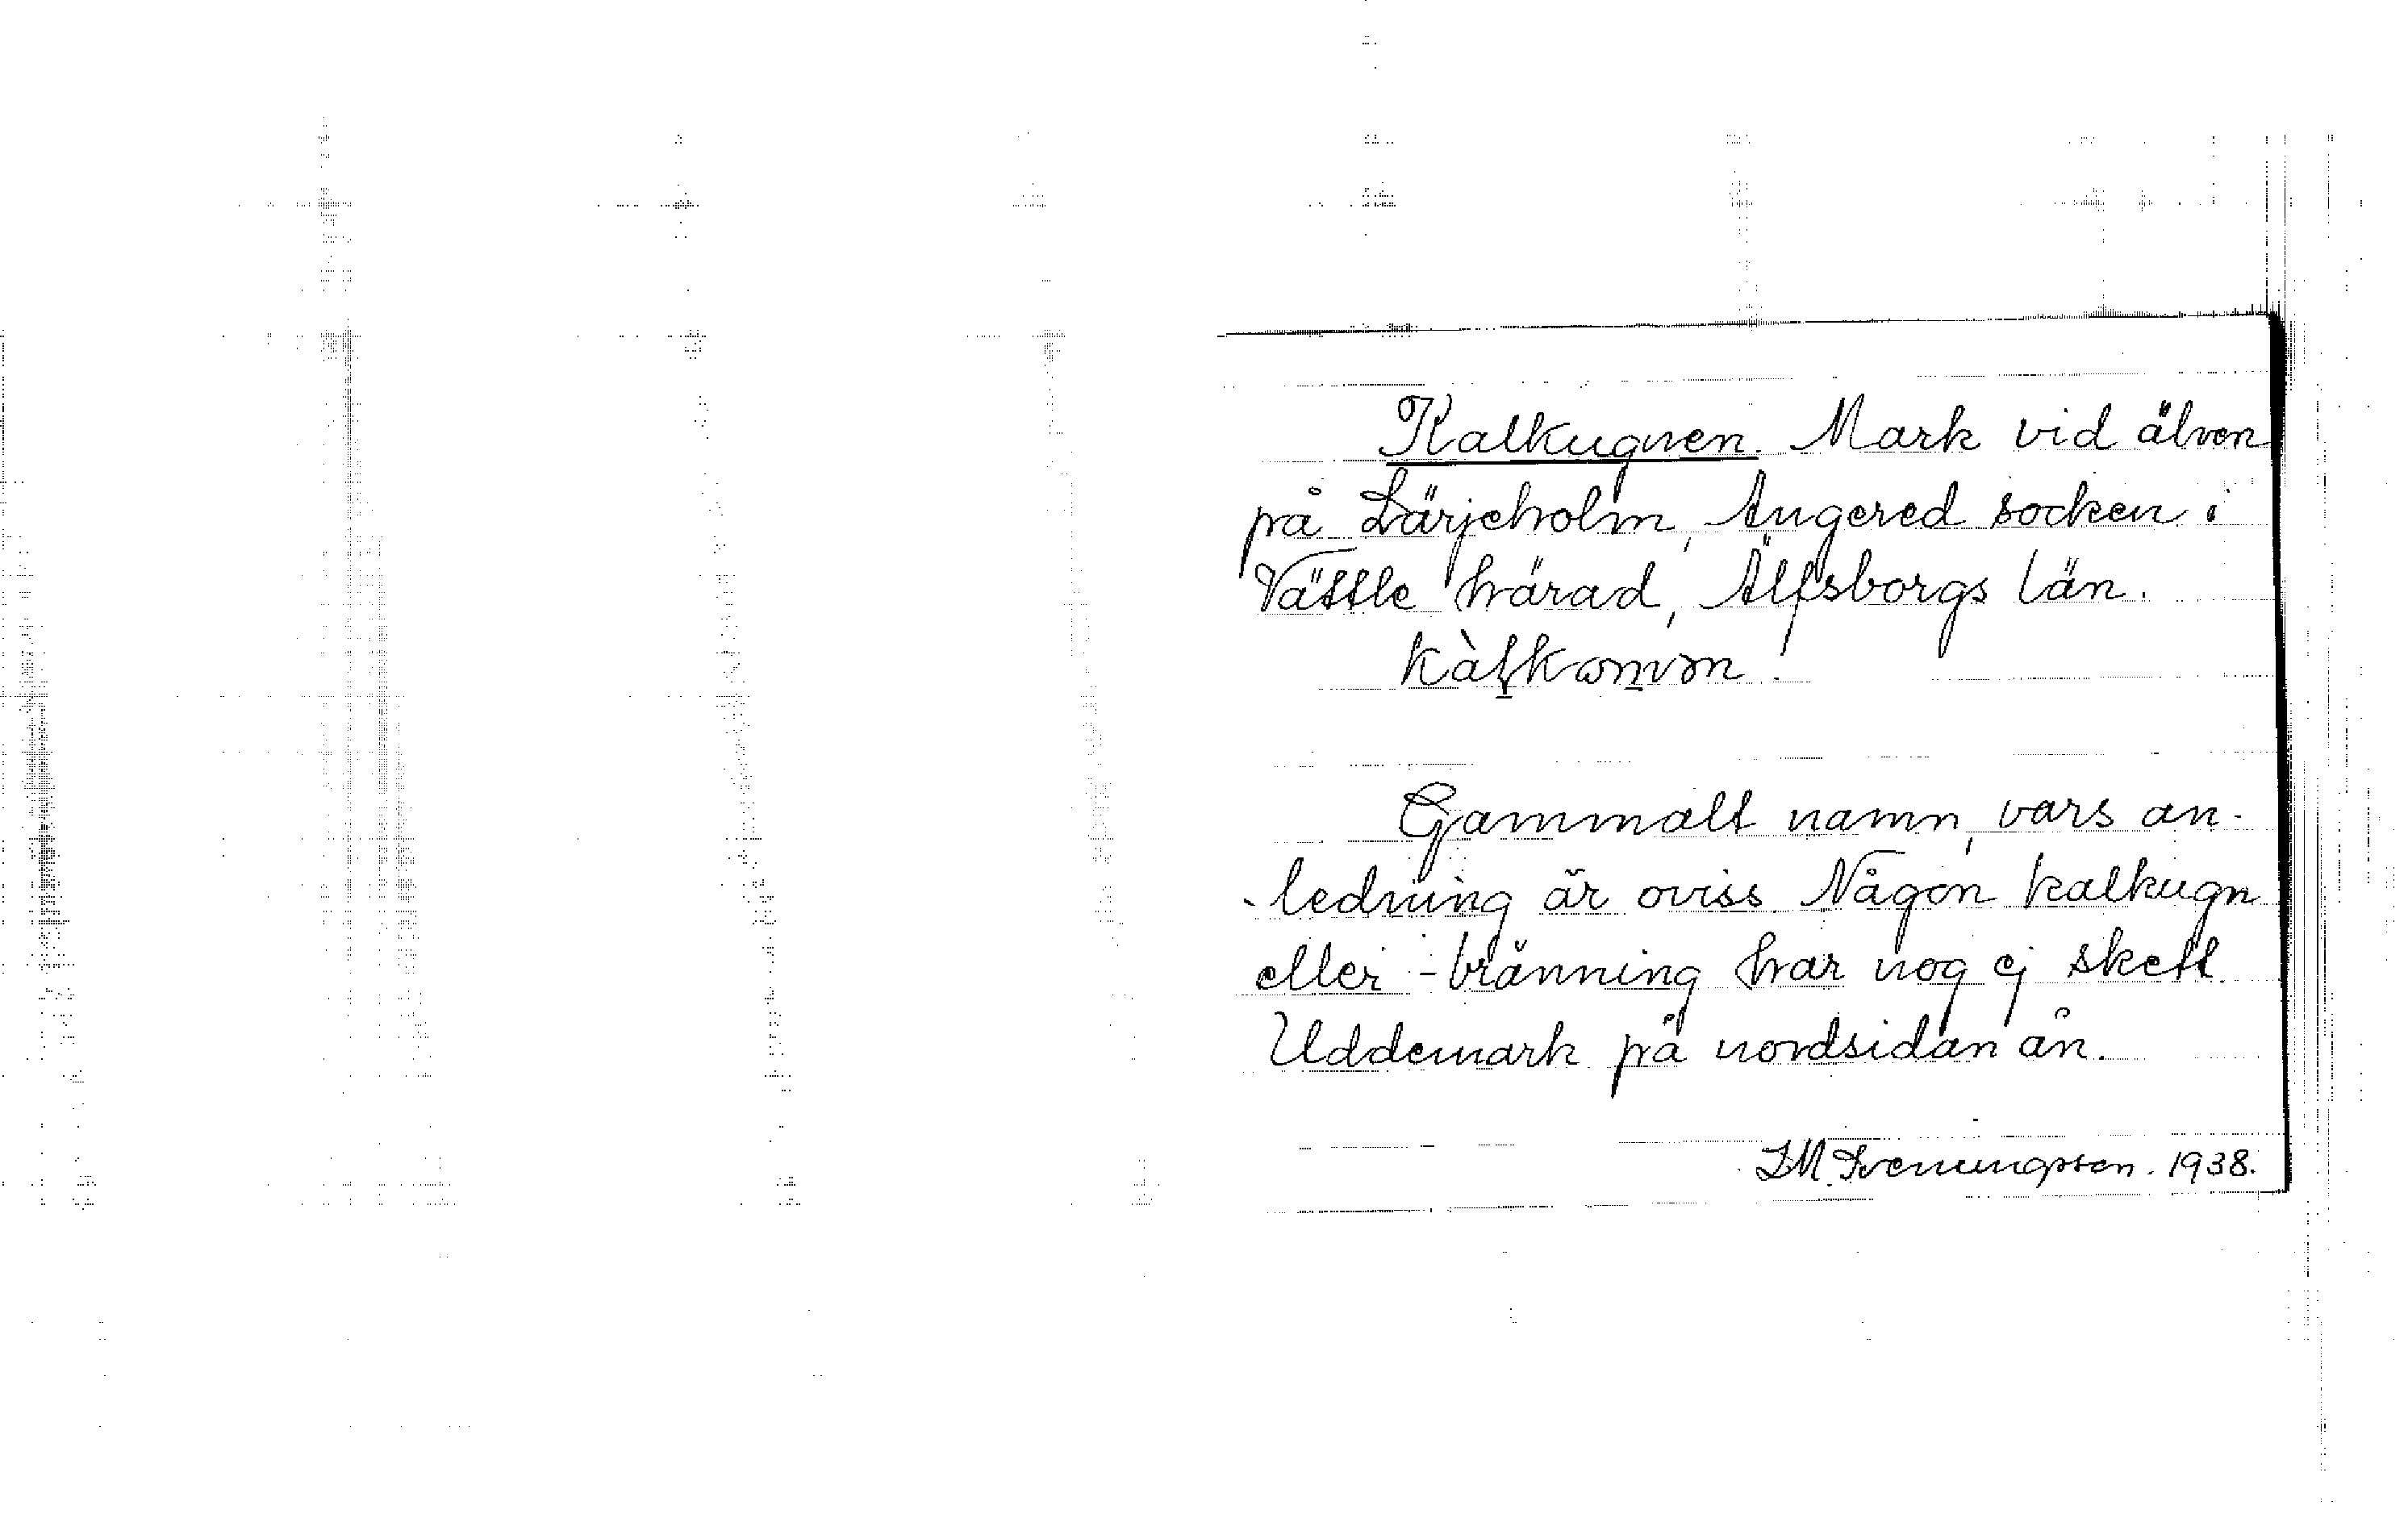 Kalkugnen. Mark vid älven
på Lärjeholm, Angered socken i
Vättle härad, Älfsborgs län.
Gammalt namn, vars an-
-ledning är oviss. Någon kalkugn
eller -bränning har nog ej skett.
Uddemark på nordsidan ån.
1938.